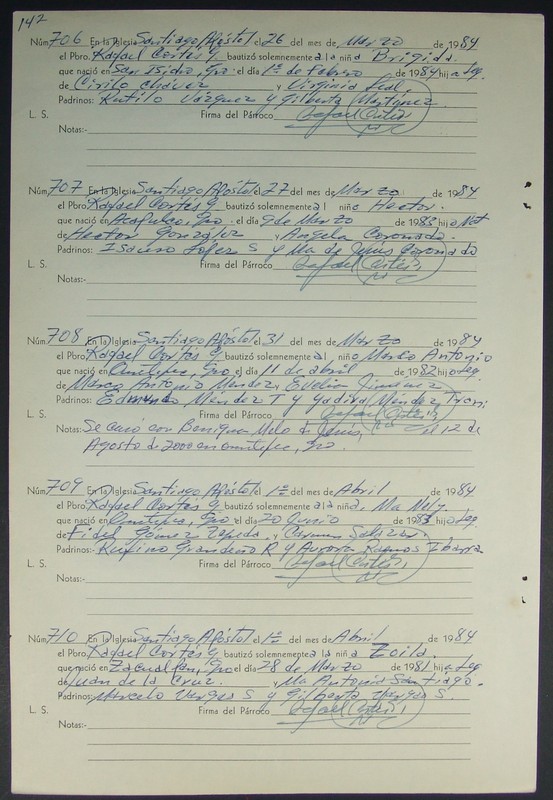 142
Núm. 706 En la Iglesia Santiago Apóstol el 26 del mes de Marzo de 1984
el Pbro. Rafael Cortés G. bautizó solemnemente a la niña Brigida
que nació en San Isidro, Gro. el día 1º de Febrero de 1984 hija Leg.
de Cirilo Chávez y Virginia Leal.
Padrinos: Rutilo Vázquez y Gilberta Martínez
L. S. Firma del Párroco Rafael Cortés
Notas:-
Núm. 707 En la Iglesia Santiago Apóstol el 27 del mes de Marzo de 1984
el Pbro. Rafael Cortés G. bautizó solemnemente al niño Hector.
que nació en Acapulco, Gro. el día 9 de Marzo de 1983 hijo Nat
de Hector González y Angela Coronado.
Padrinos: Isauro López S y Ma de Jesús Coronado
L. S. Firma del Párroco Rafael Cortés
Notas:-
Núm. 708 En la Iglesia Santiago Apóstol el 31 del mes de Marzo de 1984
el Pbro. Rafael Cortés G. bautizó solemnemente al niño Marco Antonio
que nació en Ometepec, Gro el día 11 de abril de 1982 hijo Leg.
de Marco Antonio Méndez y Evelia Jiménez
Padrinos: Edmundo Méndez T y Yadira Méndez
L. S. Firma del Párroco Rafael Cortés
Notas: Se casó con Benigna Melo de Jesús, el 12 de
Agosto de 2000 en Ometepec, Gro.
Núm. 709 En la Iglesia Santiago Apóstol el 1º del mes de Abril de 1984
el Pbro. Rafael Cortés G. bautizó solemnemente a la niña Ma Nely.
que nació en Ometepec, Gro el día 20 Junio de 1983 hija Leg.
de Fidel Gómez Zepeda. y Carmen
Padrinos:- Rufino Grandeño R y Aurora Ramos Ibarra
L. S. Firma del Párroco Rafael Cortés
Notas:-
Núm. 710 En la Iglesia Santiago Apóstol el 1º del mes de Abril de 1984
el Pbro. Rafael Cortés G. bautizó solemnemente a la niña Zoila.
que nació en Zacualpan, Gro el día 28 de Marzo de 1981 hija Leg
de Juan de la Cruz. y Ma Antonia Santiago.
Padrinos: Marcelo Vargas S y Gilberta Vargas S.
L. S. Firma del Párroco Rafael Cortés
Notas:-